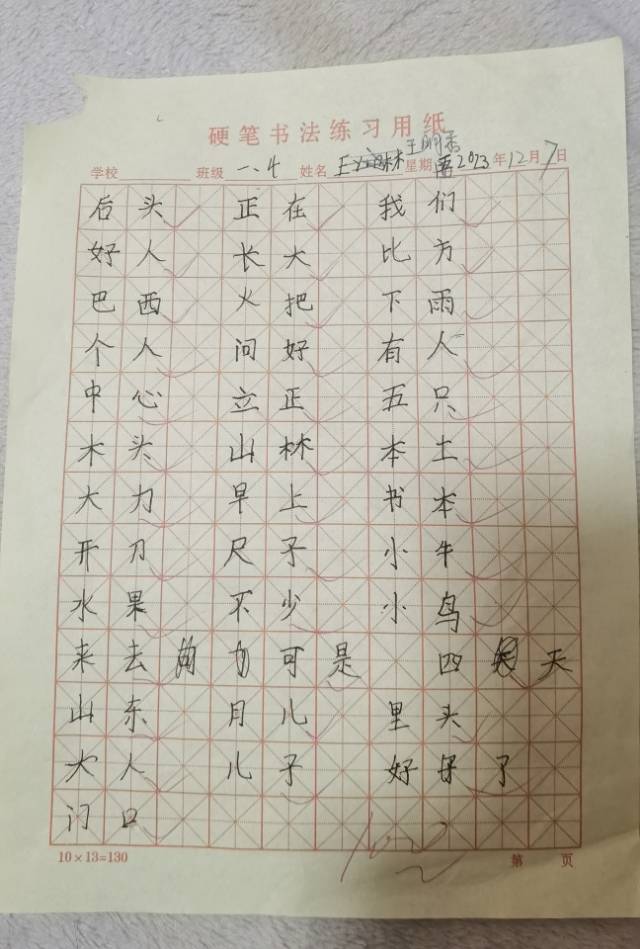 硬笔书法练习用纸
学校 班级 一、4 姓名 星期 2023年12月7日
后头 正在 我们
好人 长大 比方
巴西 火把 下雨
个人 问好 有人
中心 立正 五只
木头 山林 本土
大力 早上 书本
开刀 尺子 小牛
水果 不少 小鸟
来去 可是 四 天
山东 月儿 里头
大人 儿子 好 了
门口
10×13=130 第 页